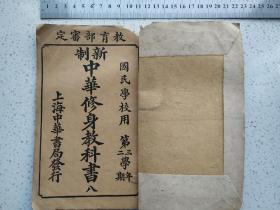 教育部審定
新制
中華修身教科書 八
國民學校用
第三學年
第二學期
上海中華書局發行